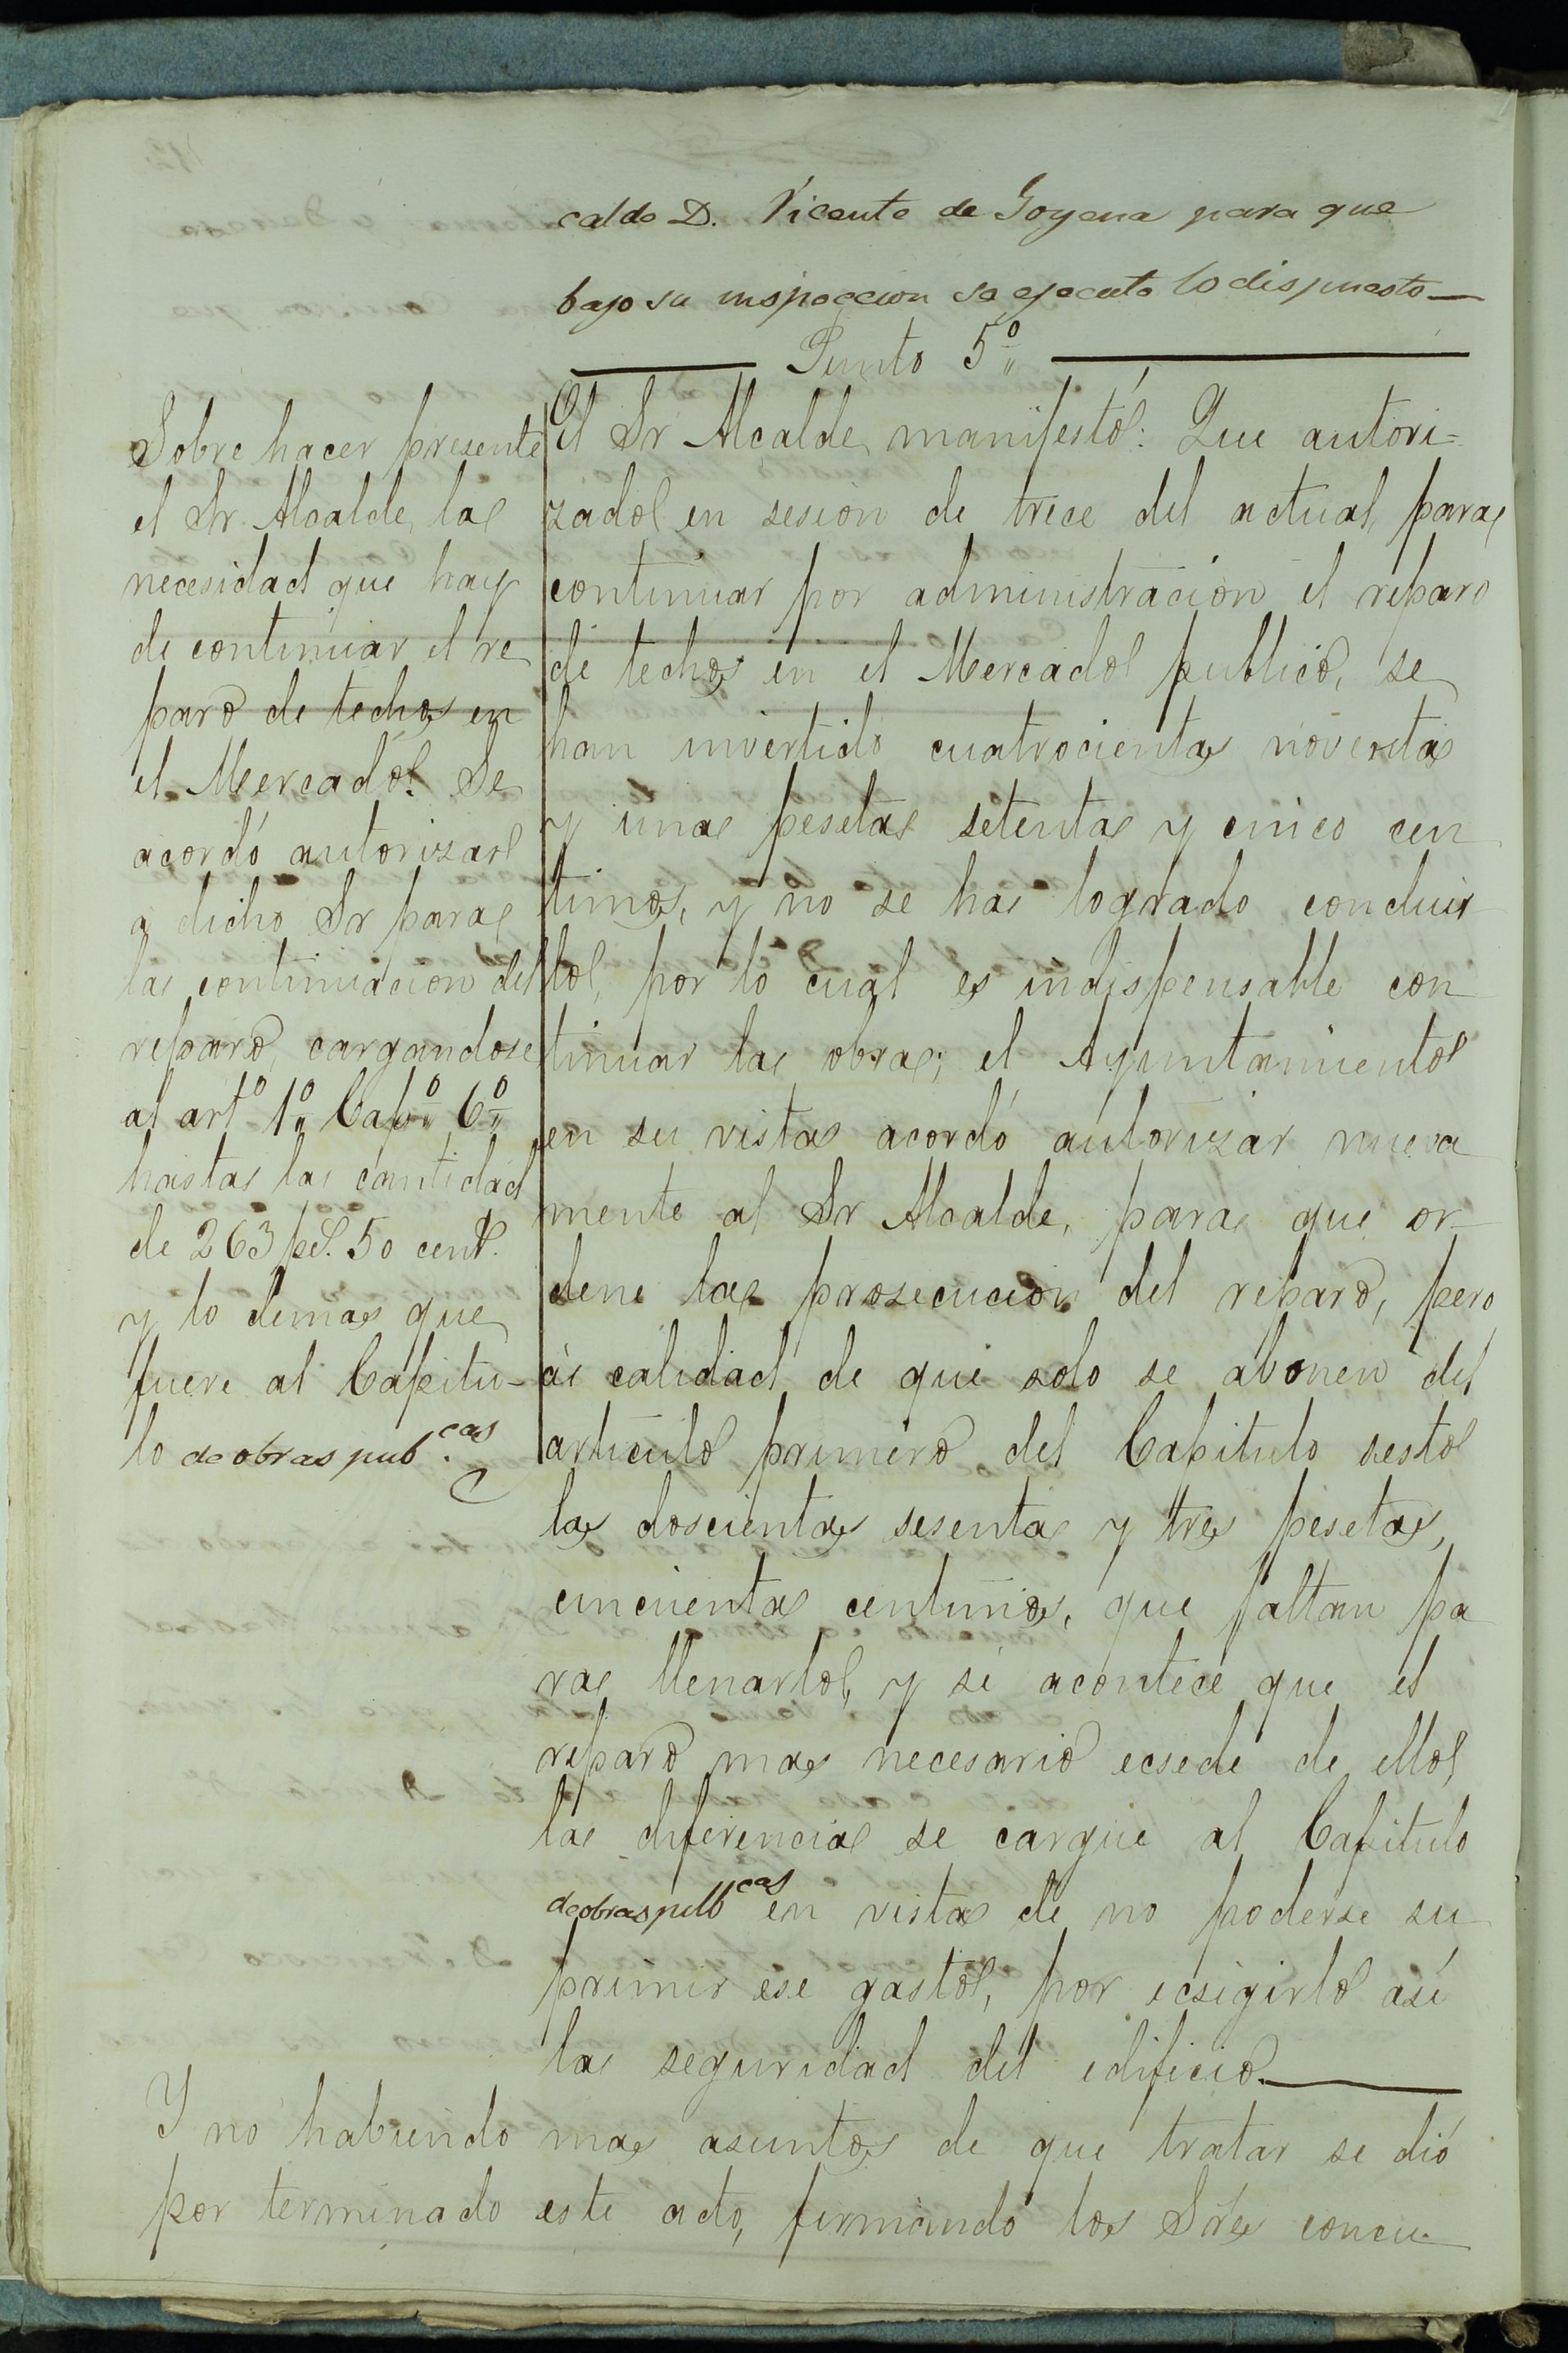 calde D. Vicente de Goyena para que
bajo su inspeccion se ejecute lo dispuesto
Punto 5º
Sobre hacer presente
el Sr. Alcalde, la
necesidad que hay
de continuar el re
paro de techos en
el Mercado. Se
acordó autorizar
a dicho Sr para
la continuacion del
reparo, cargandose
al artº 1º Capº 6º
hasta la cantidad
de 263 ps. 50 cents.
y lo demas que
fuere al Capitu-
lo de obras pub.cas
El Sr Alcalde manifestó: Que autori=
zado en sesion de trece del actual, para
continuar por administracion el reparo
de techos en el Mercado publico, se
han invertido cuatrocientas noventa
y una pesetas setenta y cinco cen
timos, y no se ha logrado concluir
lo, por lo cual es indispensable con
tinuar la obra; el Ayuntamiento
en su vista acordó autorizar nueva
mente al Sr Alcalde, para que or-
dene la prosecucion del reparo, pero
á calidad de que solo se abonen del
articulo primero del Capitulo sesto
las doscientas sesenta y tres pesetas,
cincuenta centimos, que faltan pa
ra llenarlo, y si acontece que el
reparo mas necesario ecsede de ello,
la diferencia se cargue al Capitulo
de obras pubcas en vista de no poderse su
primir ese gasto, por ecsigirlo así
la seguridad del edificio.
Y no habiendo mas asuntos de que tratar se dió
por terminado este acto, firmando los Sres concu